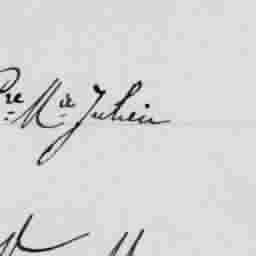 Pre Mie Julien